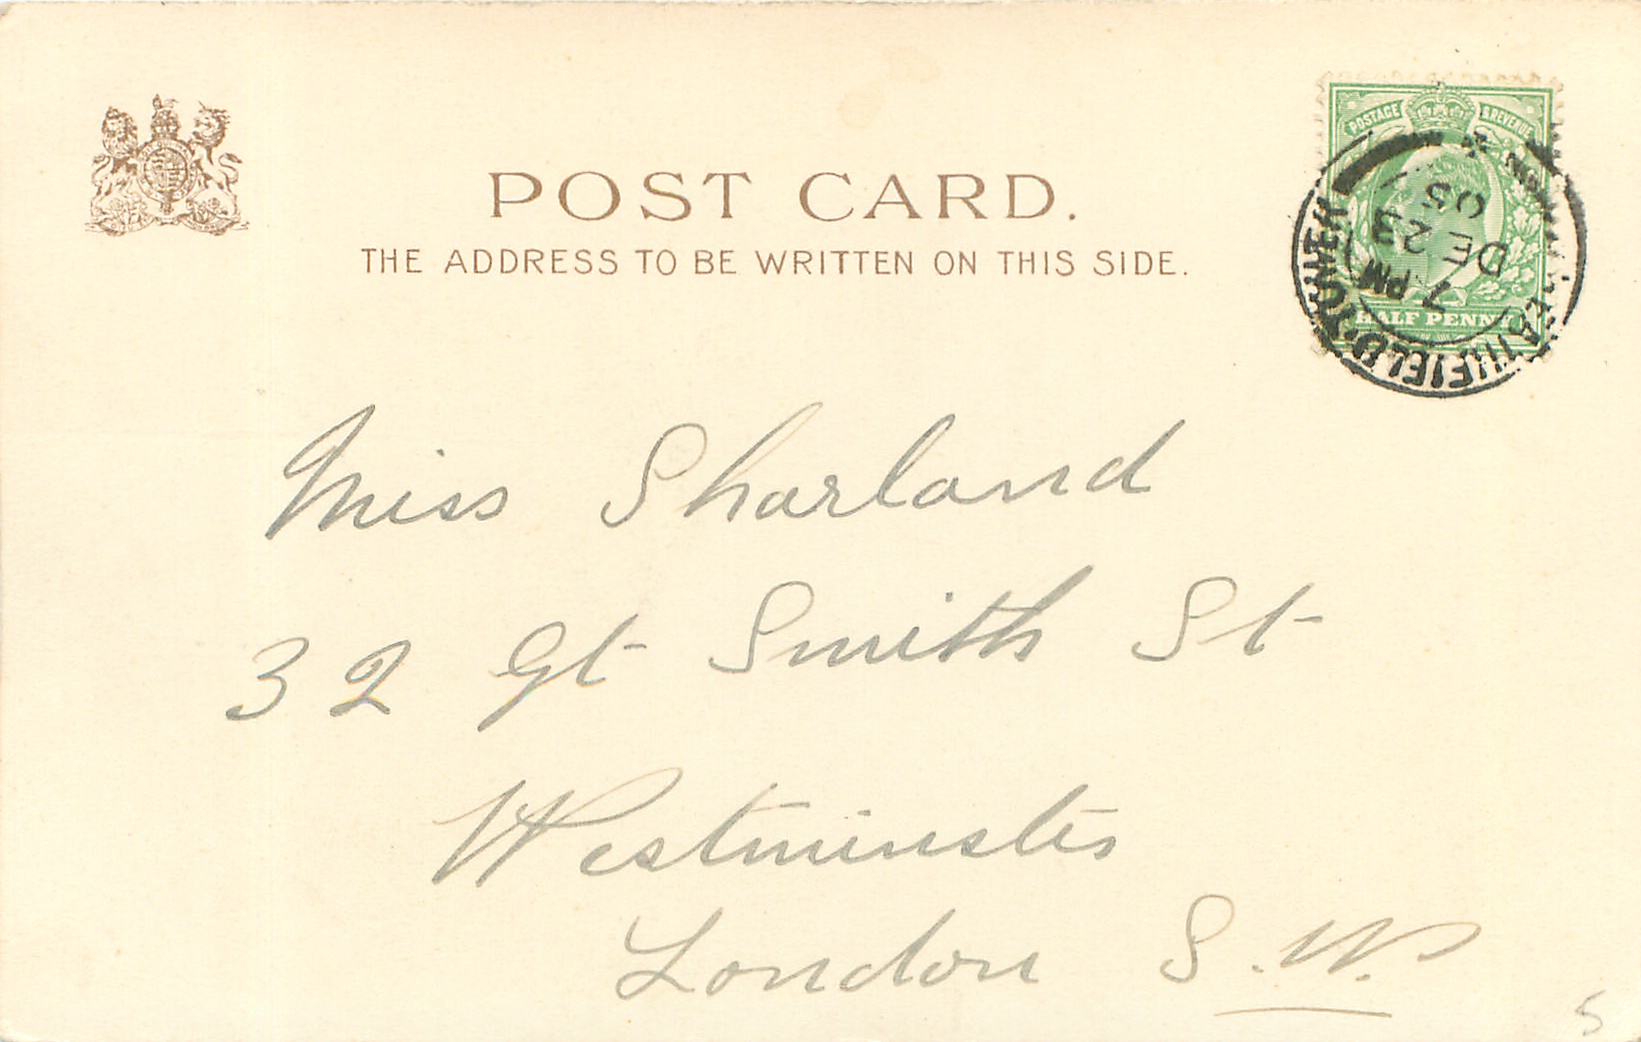 POST CARD.
THE ADDRESS TO BE WRITTEN ON THIS SIDE.
POSTAGE & REVENUE
HALF PENNY
7 PM
DE 23
05
Miss Sharland
32 Gt Smith St
Westminster
London S.W.
5